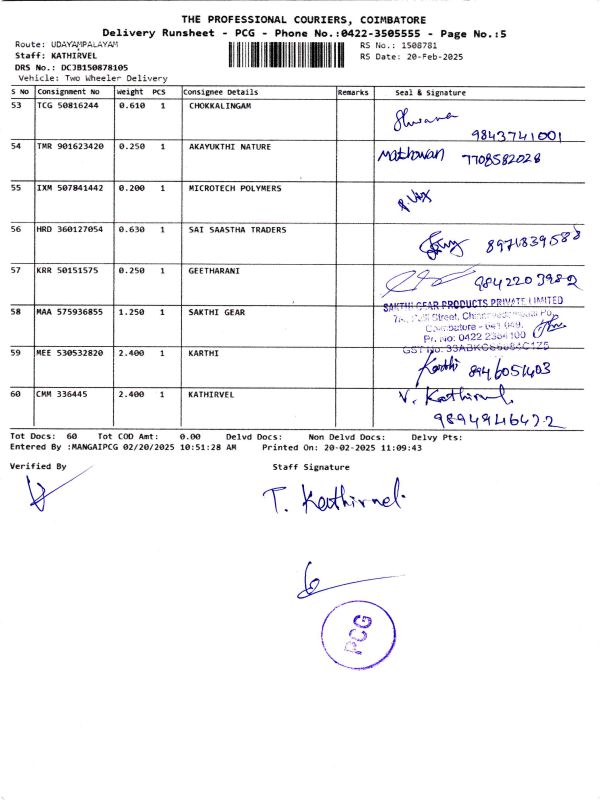 THE PROFESSIONAL COURIERS, COIMBATORE
Delivery Runsheet - PCG - Phone No.:0422-3505555 - Page No.:5
Route: UDAYAMPALAYAM RS No.: 1508781
Staff: KATHIRVEL RS Date: 20-Feb-2025
DRS No.: DCJB150878105
Vehicle: Two Wheeler Delivery
S No Consignment No Weight PCS Consignee Details Remarks Seal & Signature
53 TCG 50816244 0.610 1 CHOKKALINGAM
9843741001
54 TMR 901623420 0.250 1 AKAYUKTHI NATURE Mathavan 7708582028
55 IXM 507841442 0.200 1 MICROTECH POLYMERS
56 HRD 360127054 0.630 1 SAI SAASTHA TRADERS 8971839588
57 KRR 50151575 0.250 1 GEETHARANI 9842203982
SAKTHI GEAR PRODUCTS PRIVATE LIMITED
58 MAA 575936855 1.250 1 SAKTHI GEAR Street,
Coimbatore - 641 049.
Ph. No: 0422 2364100
GST No:
59 MEE 530532820 2.400 1 KARTHI Karthi 8946051403
60 CMM 336445 2.400 1 KATHIRVEL V. Kathirvel.
Tot Docs: 60 Tot COD Amt: 0.00 Delvd Docs: Non Delvd Docs: Delvy Pts:
Entered By :MANGAIPCG 02/20/2025 10:51:28 AM Printed On: 20-02-2025 11:09:43
Verified By Staff Signature
T. Kathirvel.
PCG